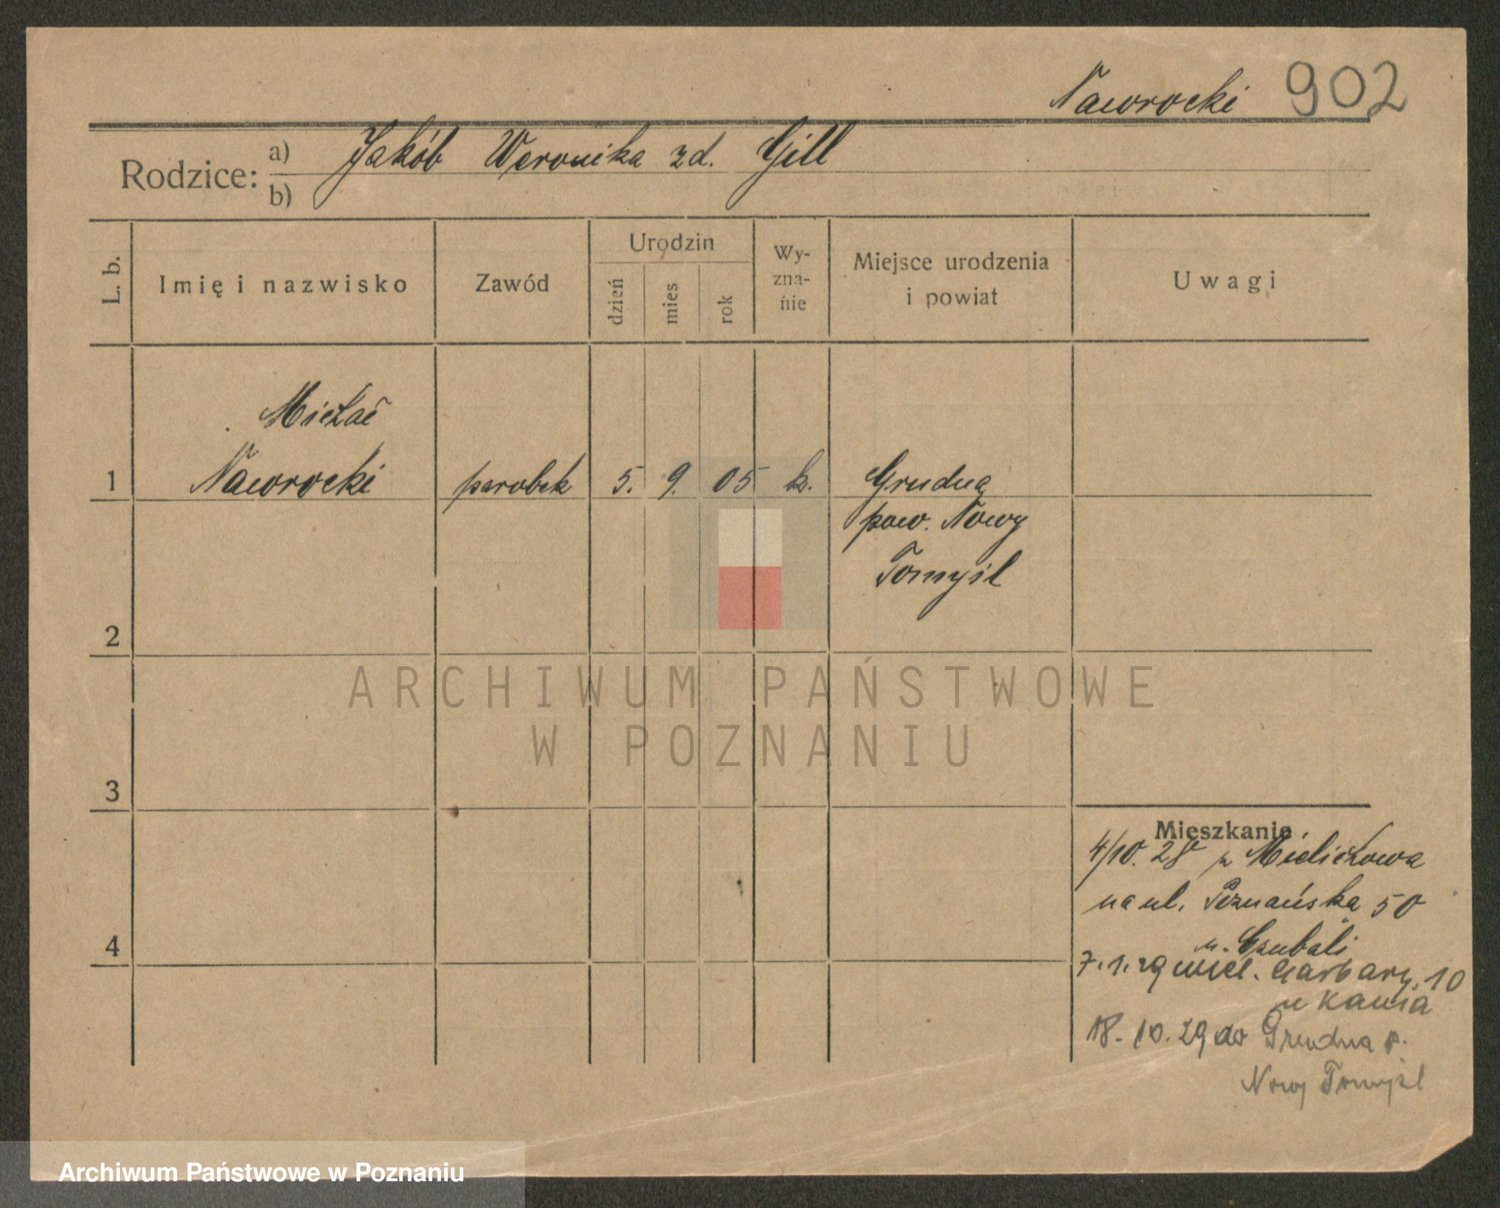 Nawrocki 902
Rodzice: a) Jakób Weronika zd. Gill
b)
L. b. Imię i nazwisko Zawód Urodzin dzień mies rok Wy-zna-nie Miejsce urodzenia i powiat Uwagi
Michał
1 Nawrocki parobek 5. 9. 05 k. Grudna
pow. Nowy
Tomyśl
2
ARCHIWUM PAŃSTWOWE
W POZNANIU
3
Mieszkanie
4/10. 28 z
na ul. Poznańska 50
4 u. Czubali
7.1.29 Garbary 10
u Kania
18.10.29 do Grudna p.
Nowy Tomyśl
Archiwum Państwowe w Poznaniu